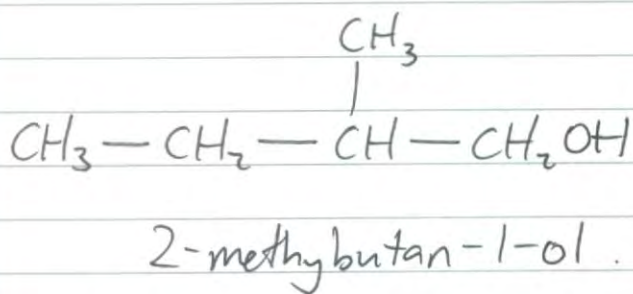 CH₃
|
CH₃ — CH₂ — CH — CH₂ OH
2-methybutan-1-ol.